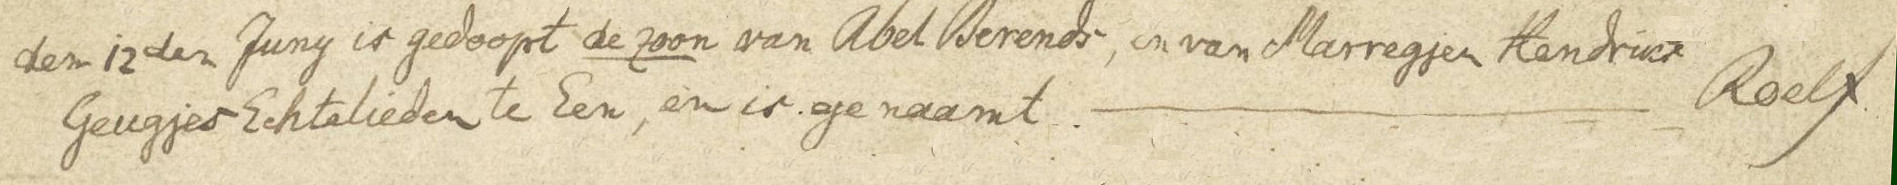 den 12den Juny is gedoopt de zoon van Abel Berends, en van Marregjen Hendriks
Geugjes Echtelieden te Een, en is genaamt. Roelf